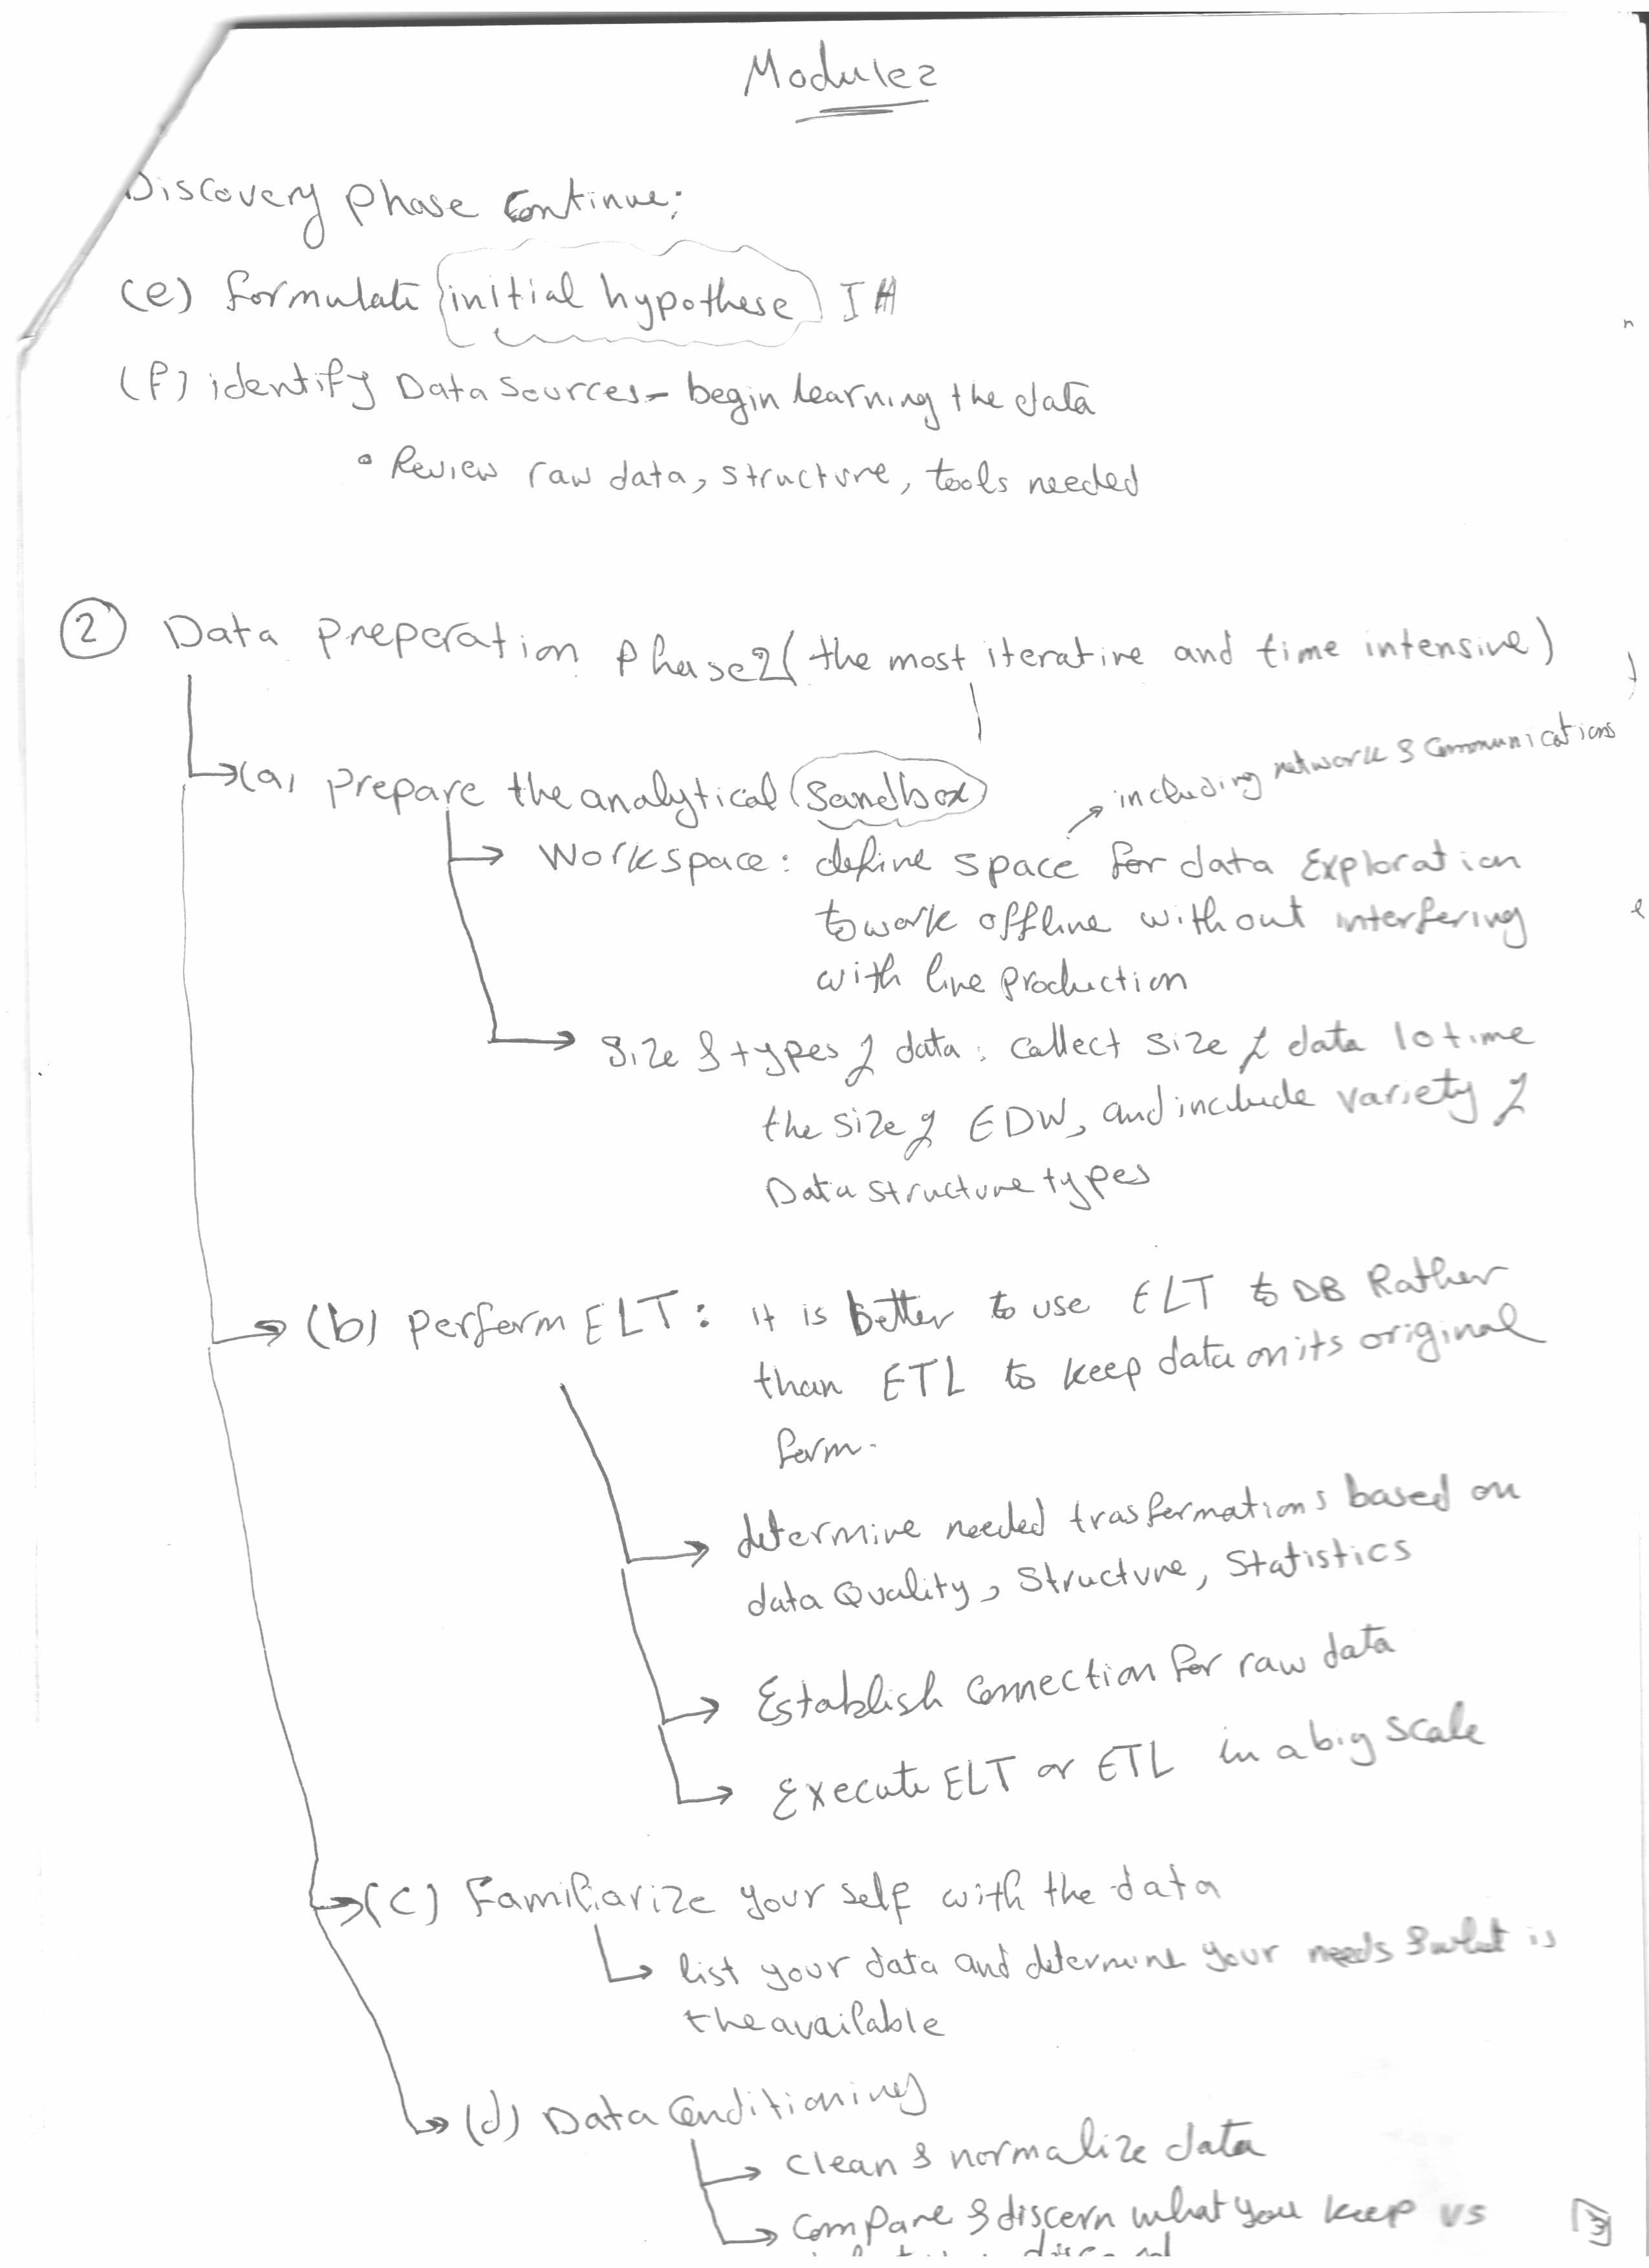 Module 2
Discovery phase continue:
(e) formulate initial hypothese IH
(f) identify Data Sources - begin learning the data
• Review raw data, structure, tools needed
② Data preperation phase2 (the most iterative and time intensive)
(a) prepare the analytical Sandbox
including network & Communications
Workspace: define space for data Exploration
to work offline without interfering
with live production
Size & types of data: collect size of data 10 time
the size of EDW, and include variety of
Data structure types
(b) perform ELT: it is better to use ELT to DB Rather
than ETL to keep data on its original
form.
determine needed trasformations based on
data Quality, Structure, Statistics
Establish Connection for raw data
Execute ELT or ETL in a big scale
(c) Familiarize your self with the data
list your data and determine your needs & what is
the available
(d) Data Conditioning
clean & normalize data
Compare & discern what you keep vs